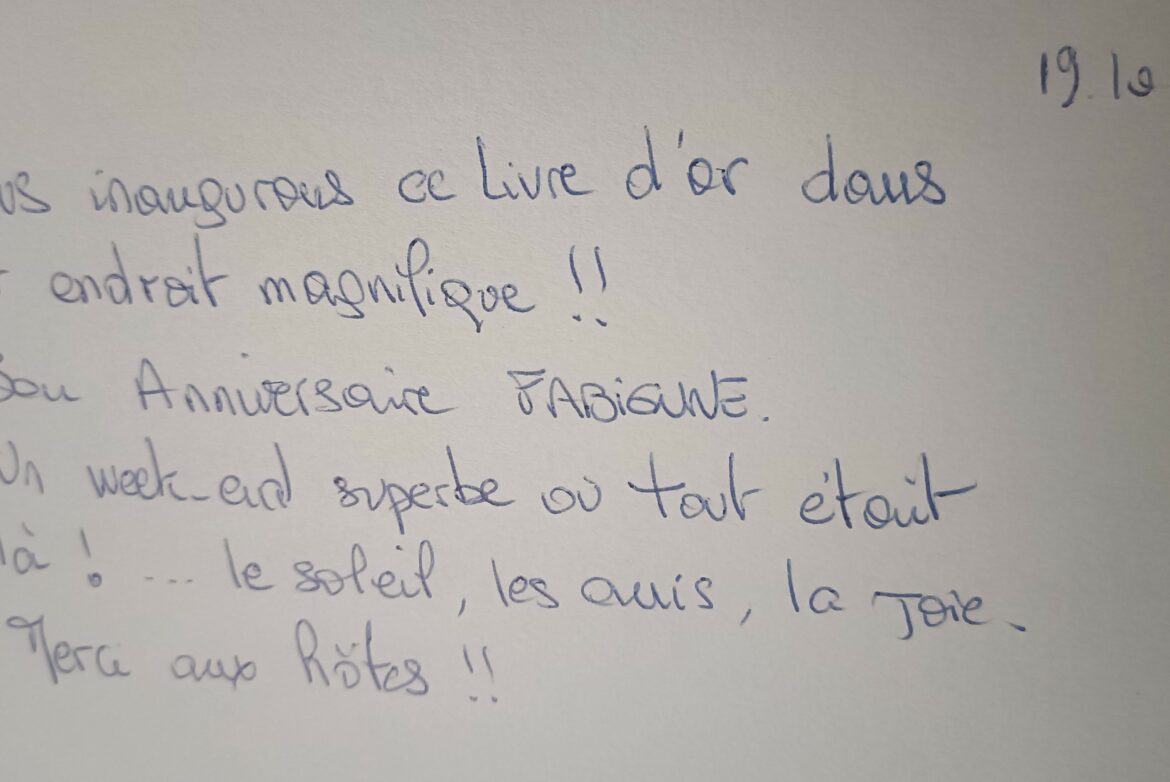 19.10
us inaugurons ce Livre d'or dans
endroit magnifique !!
Bon Anniversaire FABIENNE.
Un week-end superbe où tout était
là ! ... le soleil, les amis, la Joie.
Merci aux hôtes !!